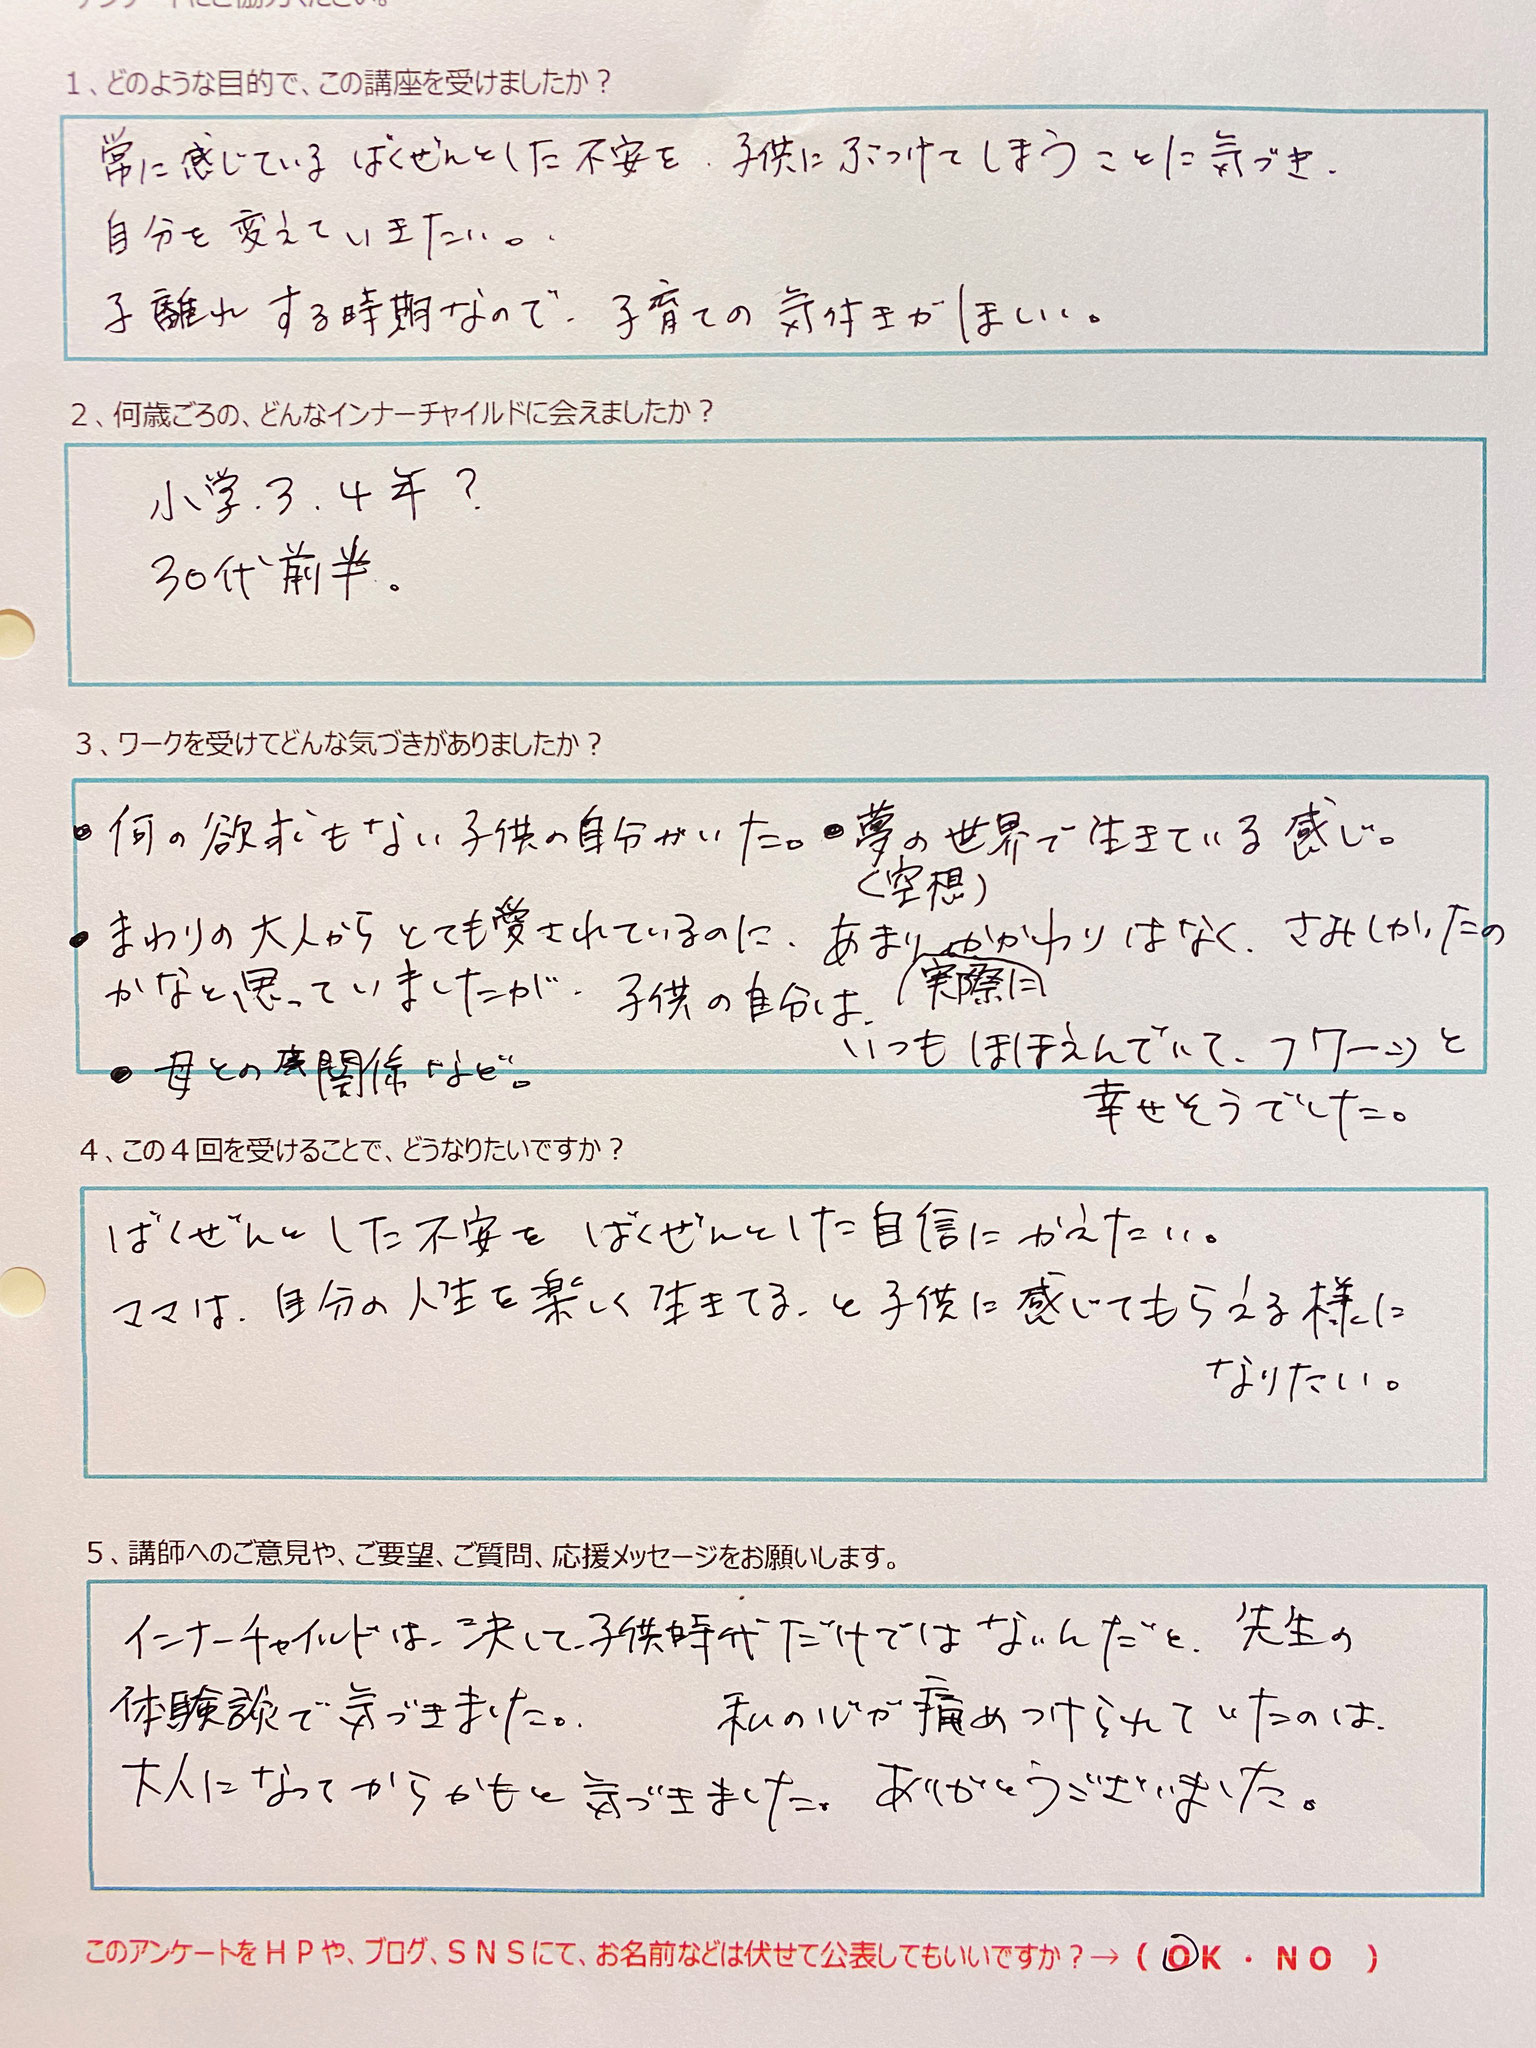 アンケートにご協力ください。
1、どのような目的で、この講座を受けましたか？
常に感じている ばくぜんとした不安を、子供にぶつけてしまうことに気づき、
自分を変えていきたい。
子離れする時期なので、子育ての気付きがほしい。
2、何歳ごろの、どんなインナーチャイルドに会えましたか？
小学.3.4年？
30代前半。
3、ワークを受けてどんな気づきがありましたか？
●何の欲求もない子供の自分がいた。●夢の世界で生きている感じ。
(空想)
●まわりの大人からとても愛されているのに、あまりかかわりはなく、さみしかったの
かなと思っていましたが、子供の自分は、
実際に
いつもほほえんでいて、フワーンと
幸せそうでした。
●母との関係など。
4、この４回を受けることで、どうなりたいですか？
ばくぜんとした不安を ばくぜんとした自信にかえたい。
ママは、自分の人生を楽しく生きてる、と子供に感じてもらえる様に
なりたい。
5、講師へのご意見や、ご要望、ご質問、応援メッセージをお願いします。
インナーチャイルドは、決して、子供時代だけではないんだと、先生の
体験談で気づきました。 私の心が痛めつけられていたのは、
大人になってからかもと気づきました。ありがとうございました。
このアンケートをＨＰや、ブログ、ＳＮＳにて、お名前などは伏せて公表してもいいですか？→（ OK ・ NO ）